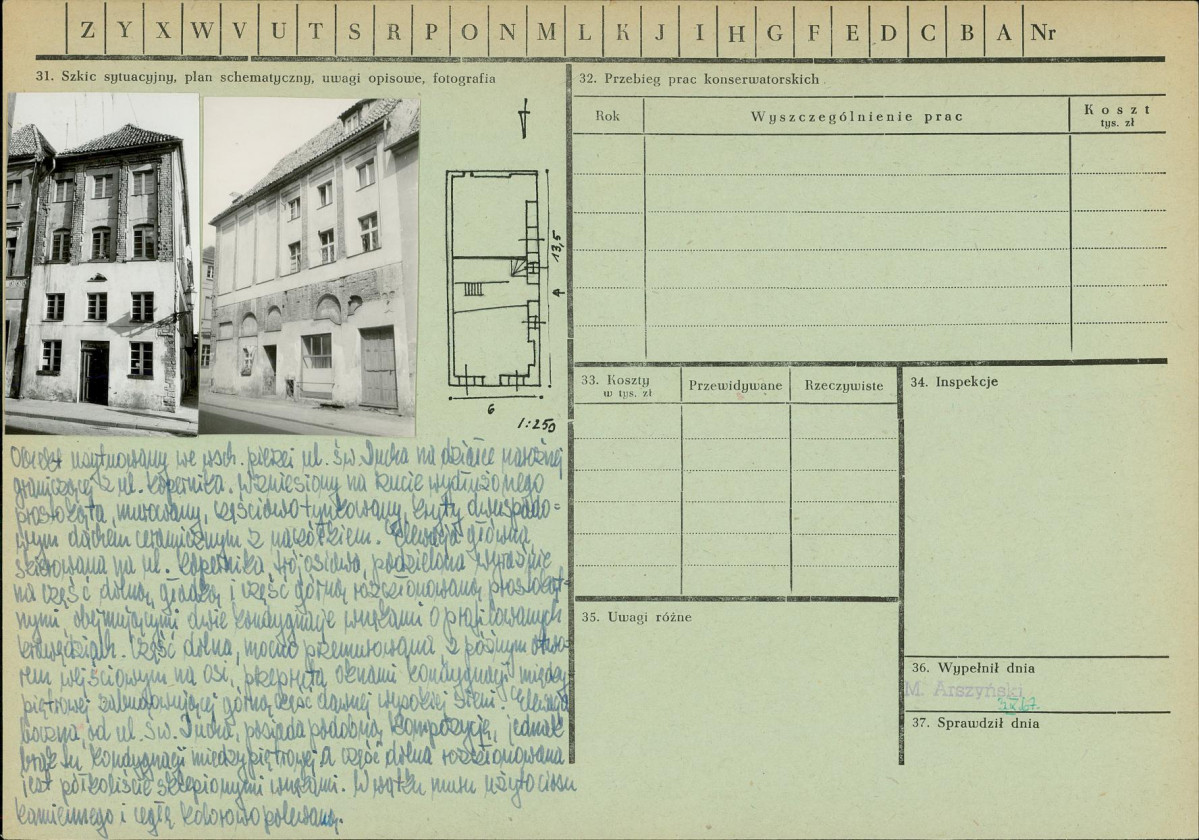 Z Y X W V U T S R P O N M L K J I H G F E D C B A Nr
31. Szkic sytuacyjny, plan schematyczny, uwagi opisowe, fotografia
13,5
6
1:250
Obiekt usytuowany we wsch. pierzei ul. Św. Ducha na działce narożnej
graniczącej z ul. Kopernika. Wzniesiony na rzucie wydłużonego
prostokąta, murowany, częściowo tynkowany, kryty dwuspado=
wym dachem ceramicznym z naczółkiem. Elewacja główna
skierowana na ul. Kopernika trójosiowa, podzielona wyraźnie
na część dolną gładką i część górną rozczłonowaną prostokąt-
nymi, obejmującymi dwie kondygnacje wnękami o profilowanych
krawędziach. Część dolna, mocno przemurowana z późnym otwo-
rem wejściowym na osi, przepruta oknami kondygnacji między
piętrowej zabudowującej górną część dawnej wysokiej sieni. Elewacja
boczna, od ul. Św. Ducha, posiada podobną kompozycję, jednak
brak tu kondygnacji międzypiętrowej a część dolna rozczłonowana
jest półkoliście sklepionymi wnękami. W wątku muru użyto ciosu
kamiennego i cegłę kolorowo polewaną.
32. Przebieg prac konserwatorskich
Rok
Wyszczególnienie prac
Koszt
tys. zł
33. Koszty
w tys. zł
Przewidywane
Rzeczywiste
34. Inspekcje
35. Uwagi różne
36. Wypełnił dnia
M. Arszyński
37. Sprawdził dnia